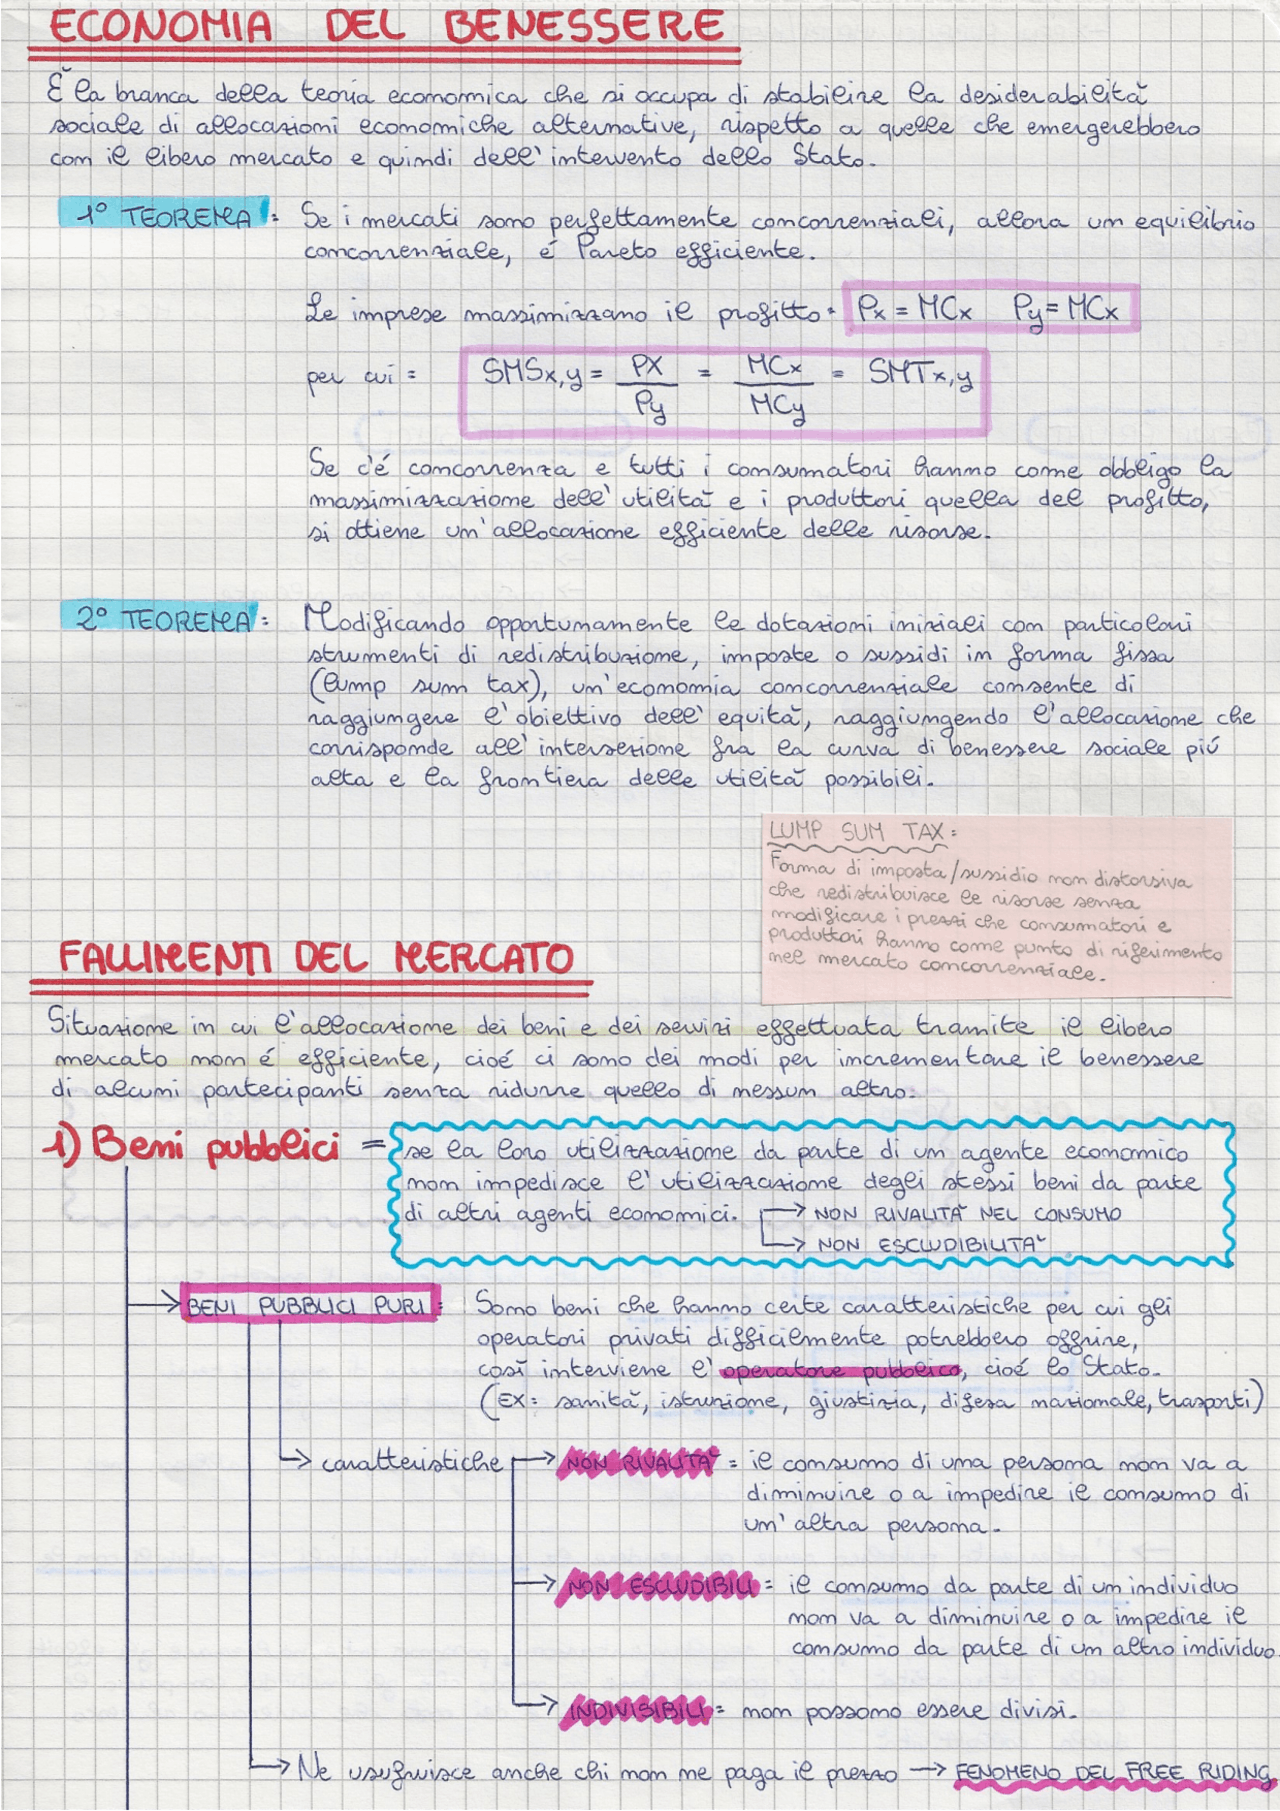 ECONOMIA DEL BENESSERE
É la branca della teoria economica che si occupa di stabilire la desiderabilità
sociale di allocazioni economiche alternative, rispetto a quelle che emergerebbero
con il libero mercato e quindi dell'intervento dello Stato.
1° TEOREMA: Se i mercati sono perfettamente concorrenziali, allora un equilibrio
concorrenziale, é Pareto efficiente.
Le imprese massimizzano il profitto: Px = MCx Py = MCx
per cui: SMSx,y = PX/Py = MCx/MCy = SMTx,y
Se c'é concorrenza e tutti i consumatori hanno come obbligo la
massimizzazione dell'utilità e i produttori quella del profitto,
si ottiene un'allocazione efficiente delle risorse.
2° TEOREMA: Modificando opportunamente le dotazioni iniziali con particolari
strumenti di redistribuzione, imposte o sussidi in forma fissa
(lump sum tax), un'economia concorrenziale consente di
raggiungere l'obiettivo dell'equità, raggiungendo l'allocazione che
corrisponde all'intersezione fra la curva di benessere sociale piú
alta e la frontiera delle utilità possibili.
LUMP SUM TAX:
Forma di imposta/sussidio non distorsiva
che redistribuisce le risorse senza
modificare i prezzi che consumatori e
produttori hanno come punto di riferimento
nel mercato concorrenziale.
FALLIMENTI DEL MERCATO
Situazione in cui l'allocazione dei beni e dei servizi effettuata tramite il libero
mercato non é efficiente, cioé ci sono dei modi per incrementare il benessere
di alcuni partecipanti senza ridurre quello di nessun altro.
1) Beni pubblici = se la loro utilizzazione da parte di un agente economico
non impedisce l'utilizzazione degli stessi beni da parte
di altri agenti economici. → NON RIVALITÀ NEL CONSUMO
→ NON ESCLUDIBILITÀ
→ BENI PUBBLICI PURI: Sono beni che hanno certe caratteristiche per cui gli
operatori privati difficilmente potrebbero offrire,
così interviene l'operatore pubblico, cioé lo Stato.
(EX: sanità, istruzione, giustizia, difesa nazionale, trasporti)
→ caratteristiche → NON RIVALITÀ = il consumo di una persona non va a
diminuire o a impedire il consumo di
un'altra persona.
→ NON ESCLUDIBILI = il consumo da parte di un individuo
non va a diminuire o a impedire il
consumo da parte di un altro individuo.
→ INDIVISIBILI = non possono essere divisi.
→ Ne usufruisce anche chi non ne paga il prezzo → FENOMENO DEL FREE RIDING